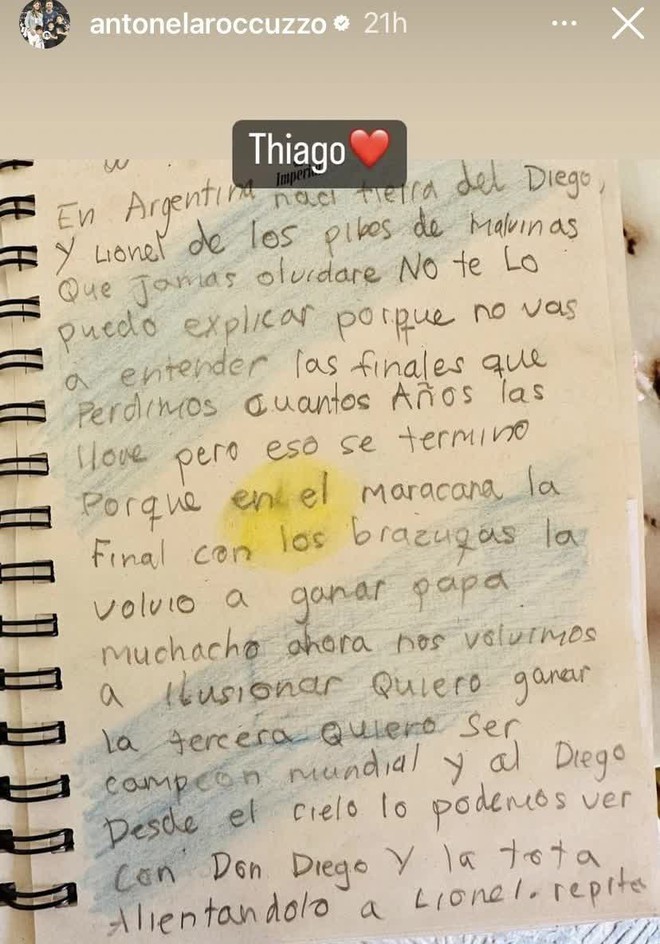 antonelaroccuzzo 21h
Thiago❤️
Imperi
En Argentina naci tierra del Diego,
y Lionel de los pibes de Malvinas
Que jamas olvidare No te Lo
puedo explicar porque no vas
a entender las finales que
Perdimos Cuantos Años las
llore pero eso se termino
Porque en el maracana la
Final con los brazugas la
volvio a ganar papa
muchacho ahora nos volvimos
a Ilusionar Quiero ganar
la tercera Quiero Ser
campeon mundial y al Diego
Desde el cielo lo podemos ver
Con Don Diego Y la tota
Alientandolo a Lionel. repite